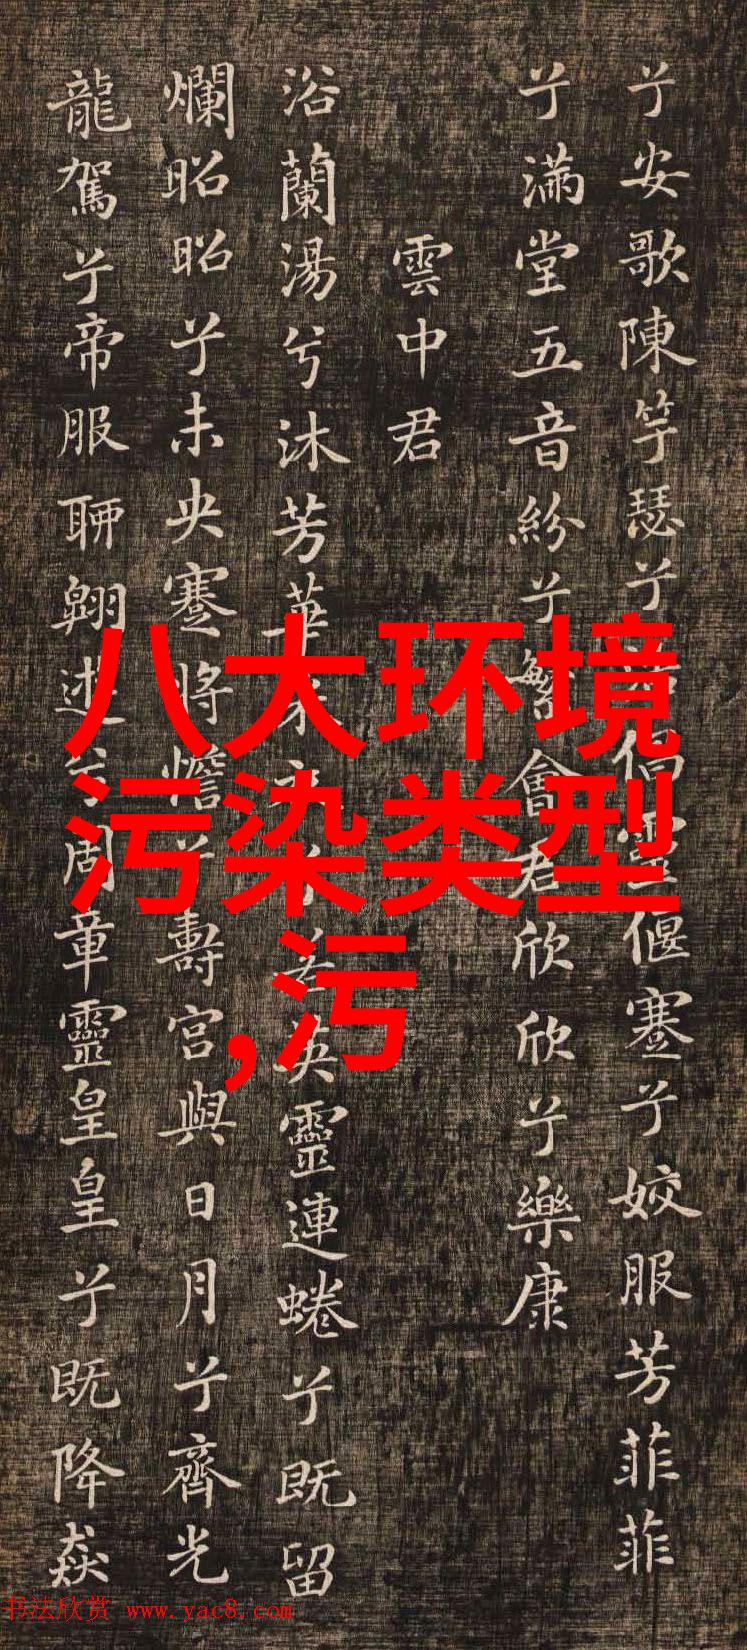 兮安歌陳竽瑟兮浩倡靈偃蹇兮姣服芳菲菲
兮滿堂五音紛兮繁會君欣欣兮樂康
雲中君
浴蘭湯兮沐芳華采衣兮若英靈連蜷兮既留
爛昭昭兮未央蹇將憺兮壽宮與日月兮齊光
龍駕兮帝服聊翱遊兮周章靈皇皇兮既降猋
八大环境
污染类型
,污
书法欣赏 www.yac8.com